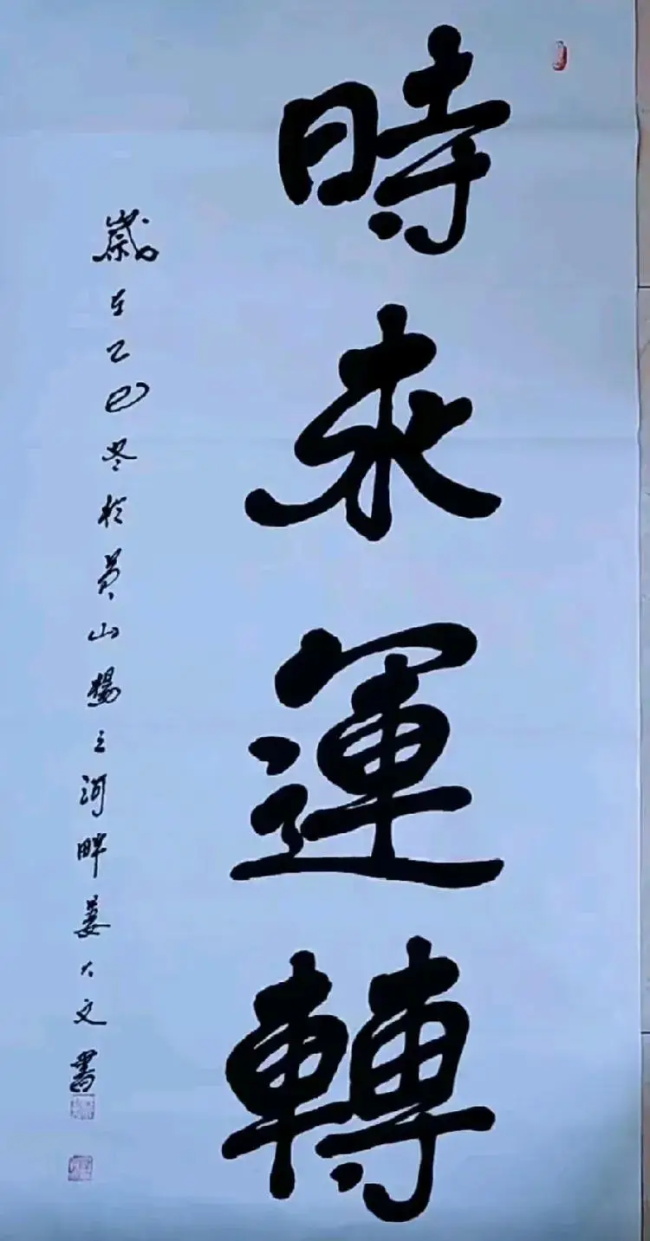 時來運轉
歲在乙巳冬於黃山揚之河畔姜大文書